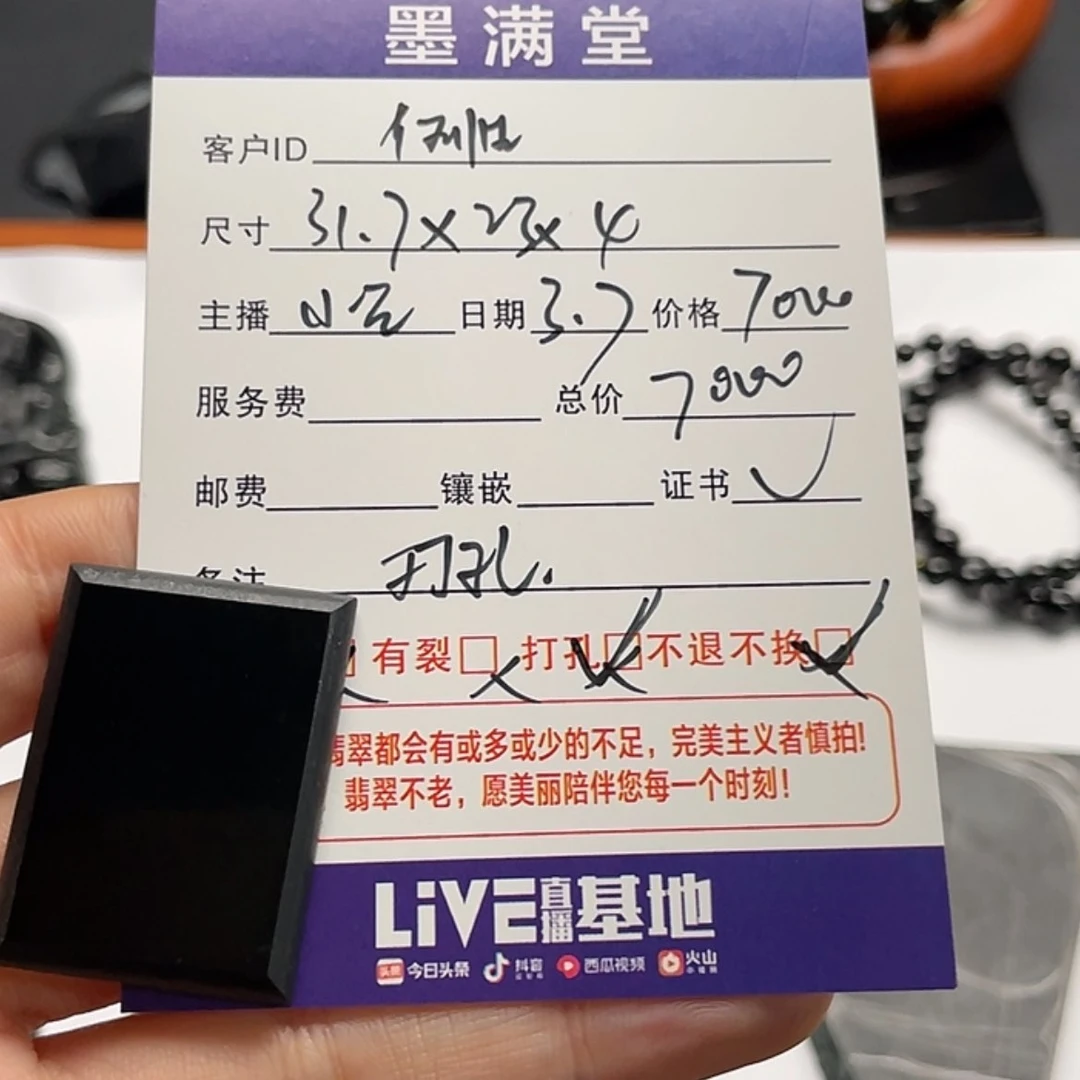 墨满堂
客户ID
尺寸 31.7×23×4
主播 日期 3.7 价格 7000
服务费 总价 7000
邮费 镶嵌 证书
备注 打孔.
有裂 打孔 不退不换
翡翠都会有或多或少的不足，完美主义者慎拍!
翡翠不老，愿美丽陪伴您每一个时刻!
LiVE直播基地
头条 今日头条 抖音 西瓜视频 火山